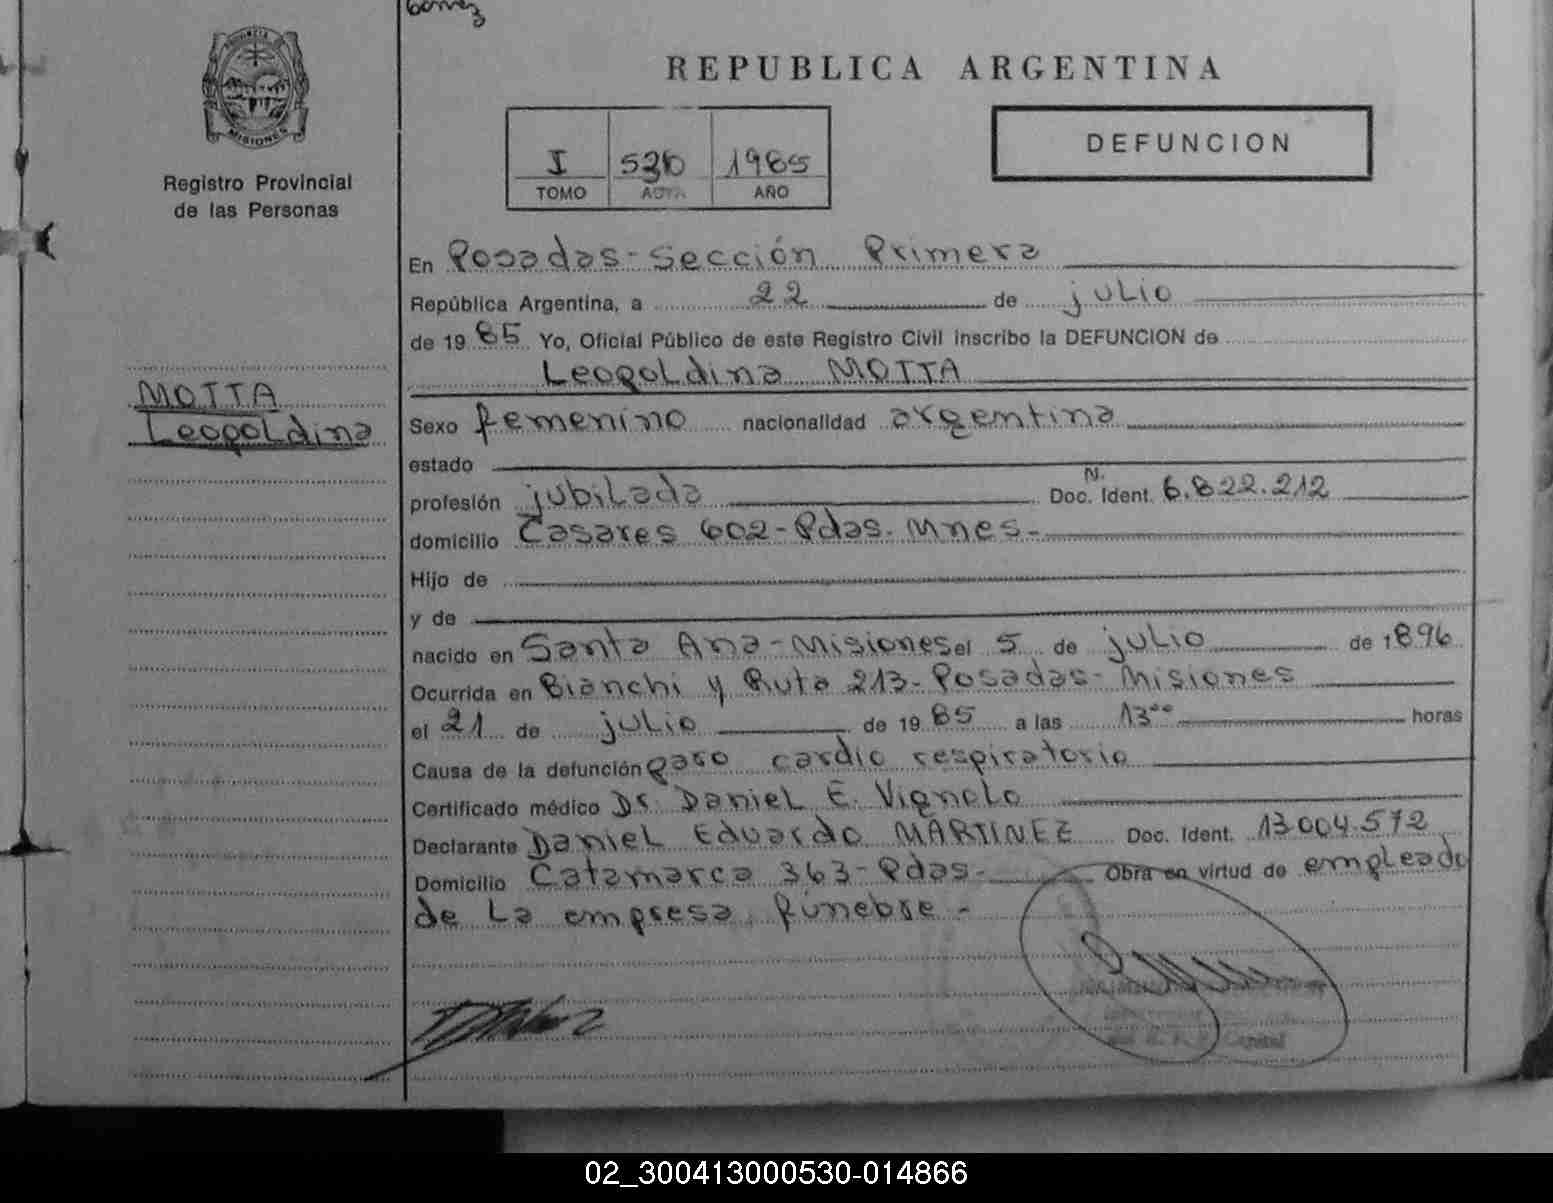 Gómez
PROVINCIA
MISIONES
Registro Provincial
de las Personas
MOTTA
Leopoldina
REPUBLICA ARGENTINA
I 1985
TOMO ACTA AÑO
DEFUNCION
En Posadas - Sección Primera
República Argentina, a 22 de julio
de 1985 Yo, Oficial Público de este Registro Civil inscribo la DEFUNCION de
Leopoldina MOTTA
Sexo femenino nacionalidad argentina
estado
profesión jubilada N. Doc. Ident. 6.822.212
domicilio Casares 602 - Pdas. Mnes -
Hijo de
y de
nacido en Santa Ana - Misiones el 5 de julio de 1896
Ocurrida en Bianchi y Ruta 213 - Posadas - Misiones
el 21 de julio de 1985 a las 13 ºº horas
Causa de la defunción paro cardio respiratorio
Certificado médico Dr. Daniel E. Vignolo
Declarante Daniel Eduardo MARTINEZ Doc. Ident. 13004.572
Domicilio Catamarca 363 - Pdas - Obra en virtud de empleado
de la empresa fúnebre -
Capital
02_300413000530-014866